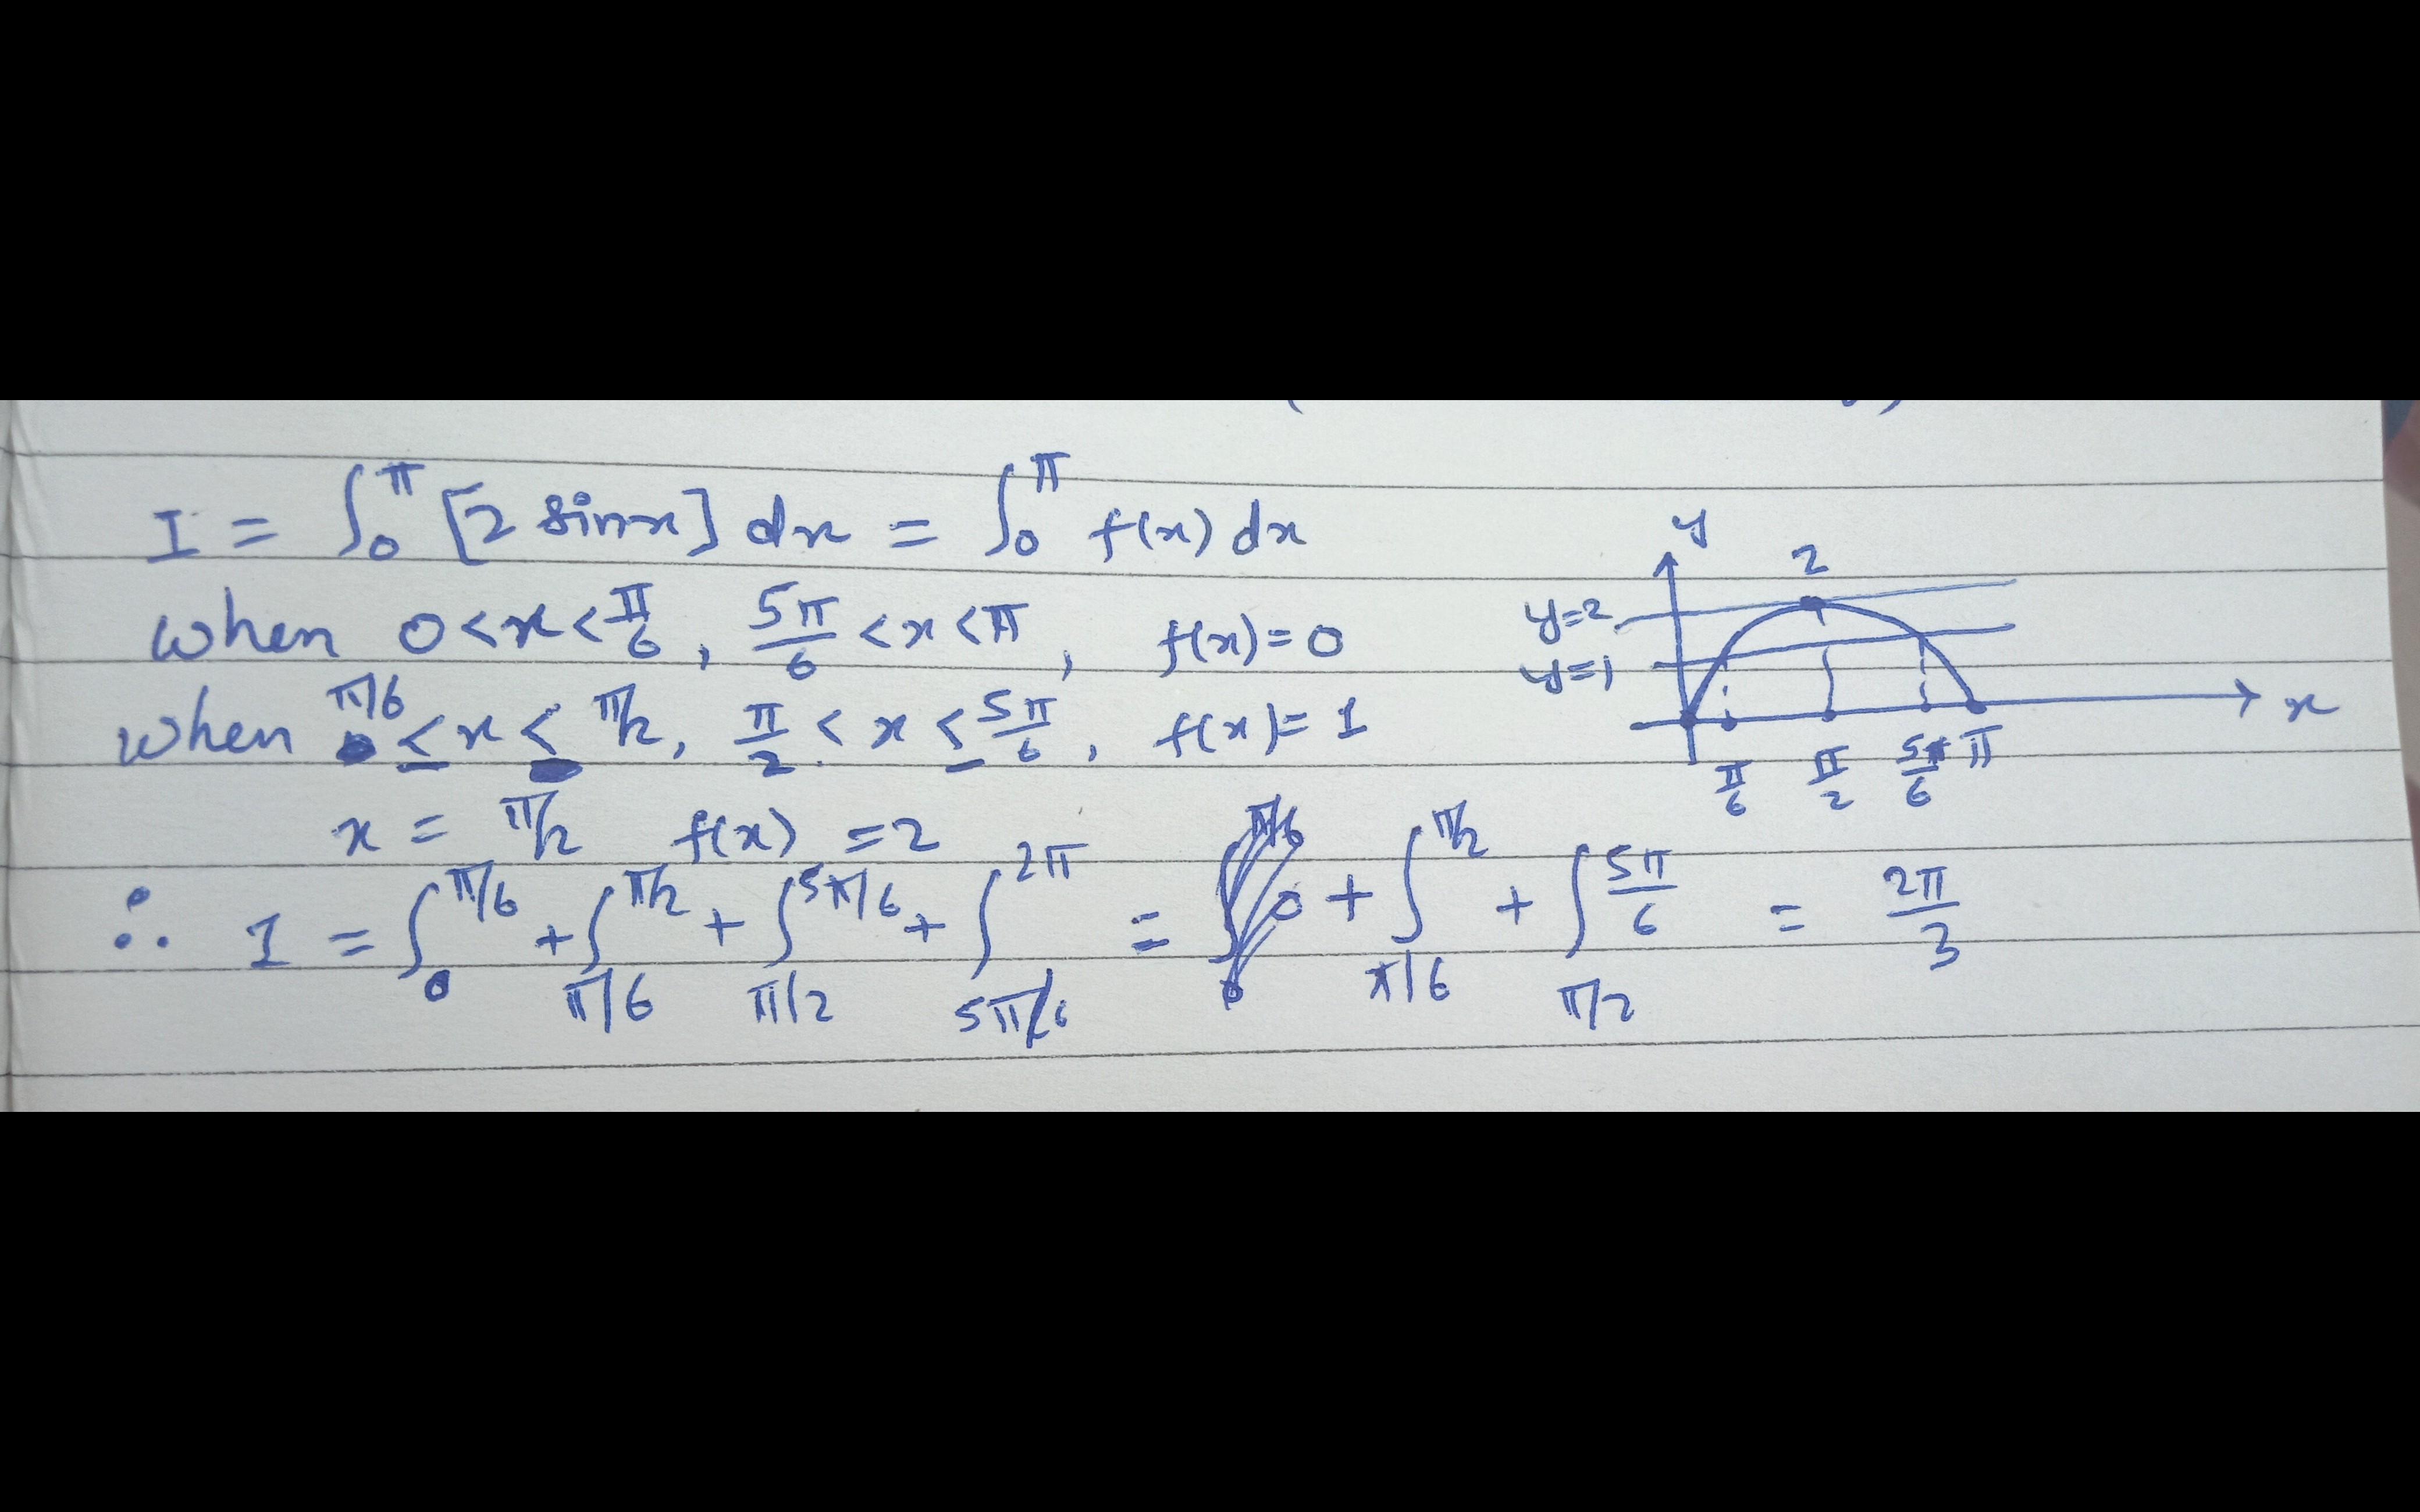 I = ∫₀^π [2 sinx] dx = ∫₀^π f(x) dx
when 0<x<π/6, 5π/6 <x<π, f(x)=0
when π/6 ≤ x < π/2, π/2 < x ≤ 5π/6, f(x)= 1
x = π/2 f(x) =2
∴ I = ∫₀^π/6 + ∫_π/6^π/2 + ∫_π/2^5π/6 + ∫_5π/6^2π = 0 + ∫_π/6^π/2 + ∫_π/2^5π/6 = 2π/3
y
2
y=2
y=1
x
π/6 π/2 5π/6 π